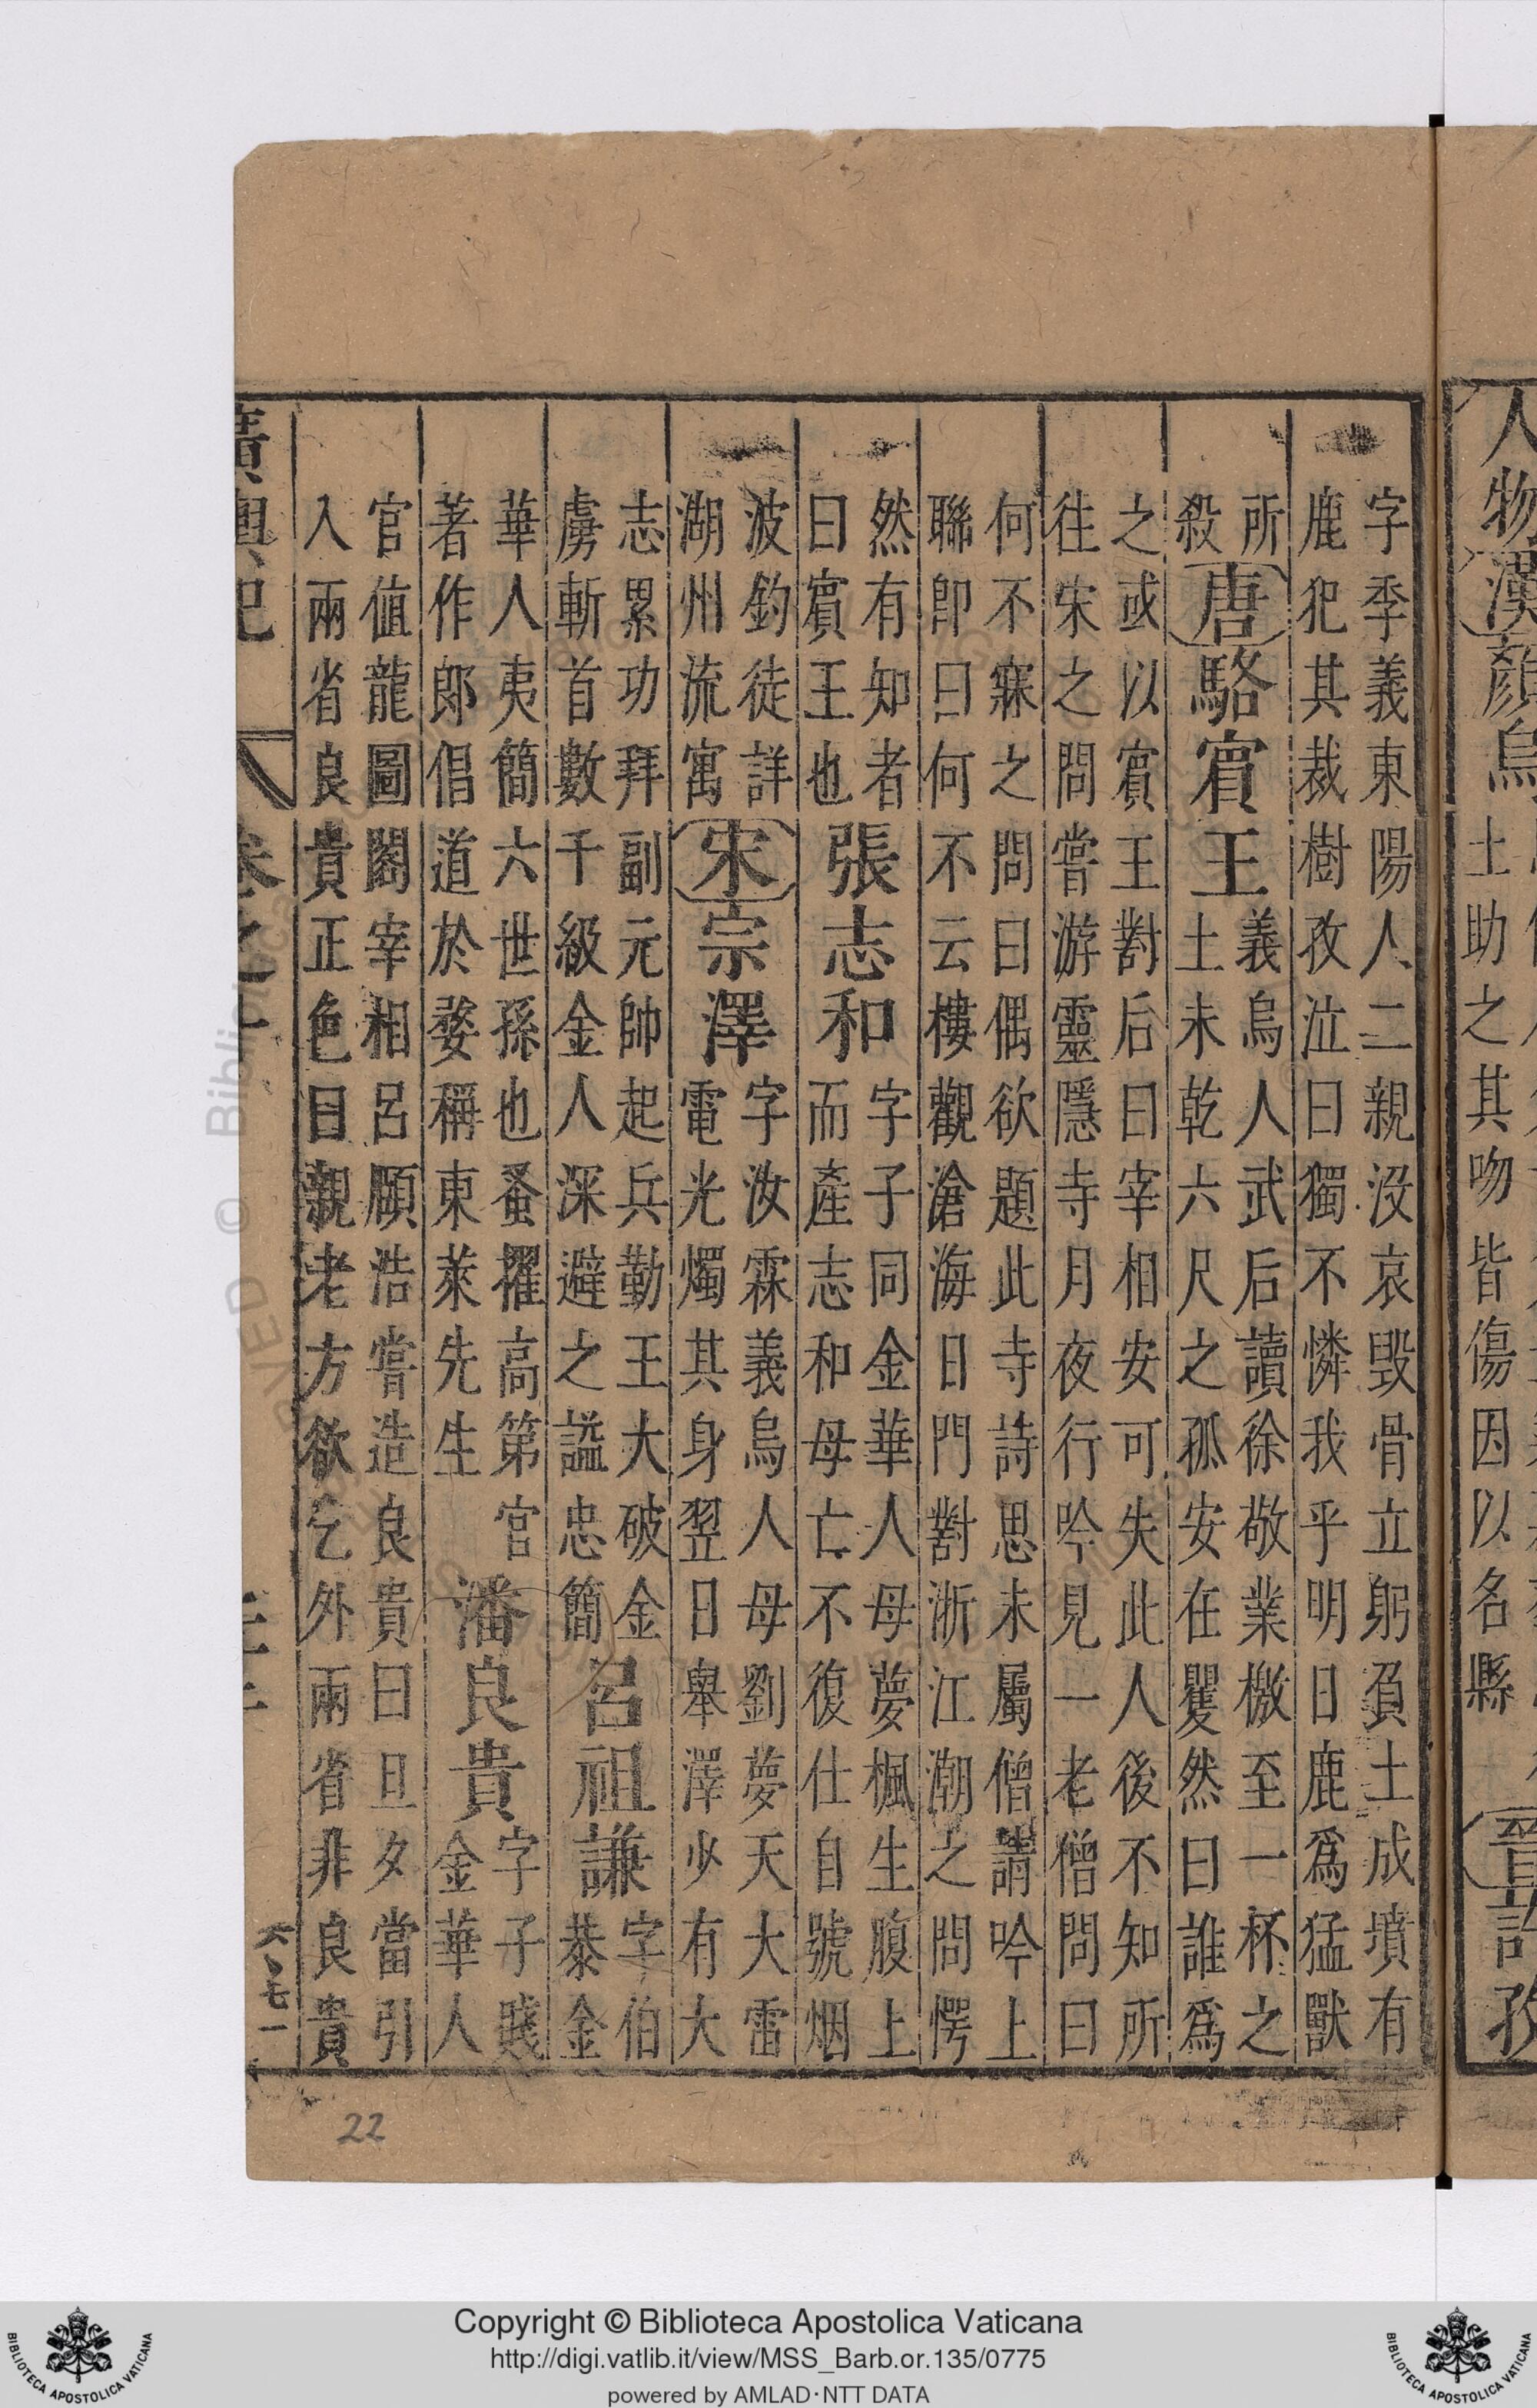 人物漢顏烏
土助之其吻皆傷因以名縣
晉許孜
字季義東陽人二親沒哀毀骨立躬負土成墳有
鹿犯其裁樹孜泣曰獨不憐我乎明日鹿爲猛獸
所
殺
唐駱賓王
義烏人武后讀徐敬業檄至一杯之
土未乾六尺之孤安在矍然曰誰爲
之或以賓王對后曰宰相安可失此人後不知所
往宋之問嘗游靈隱寺月夜行吟見一老僧問曰
何不寐之問曰偶欲題此寺詩思未屬僧請吟上
聯即曰何不云樓觀滄海日門對浙江潮之問愕
然有知者
曰賓王也
張志和
字子同金華人母夢楓生腹上
而產志和母亡不復仕自號烟
波釣徒詳
湖州流寓
宋宗澤
字汝霖義烏人母劉夢天大雷
電光燭其身翌日舉澤少有大
志累功拜副元帥起兵勤王大破金
虜斬首數千級金人深避之謚忠簡
呂祖謙
字伯
恭金
華人夷簡六世孫也蚤擢高第官
著作郎倡道於婺稱東萊先生
潘良貴
字子賤
金華人
官値龍圖閣宰相呂頤浩嘗造良貴曰旦夕當引
入兩省良貴正色目親老方欲乞外兩省非良貴
廣輿記
卷之十
六七一
22
Copyright © Biblioteca Apostolica Vaticana
http://digi.vatlib.it/view/MSS_Barb.or.135/0775
powered by AMLAD·NTT DATA
BIBLIOTECA APOSTOLICA VATICANA
BIBLIOTECA APOSTOLICA VATICANA